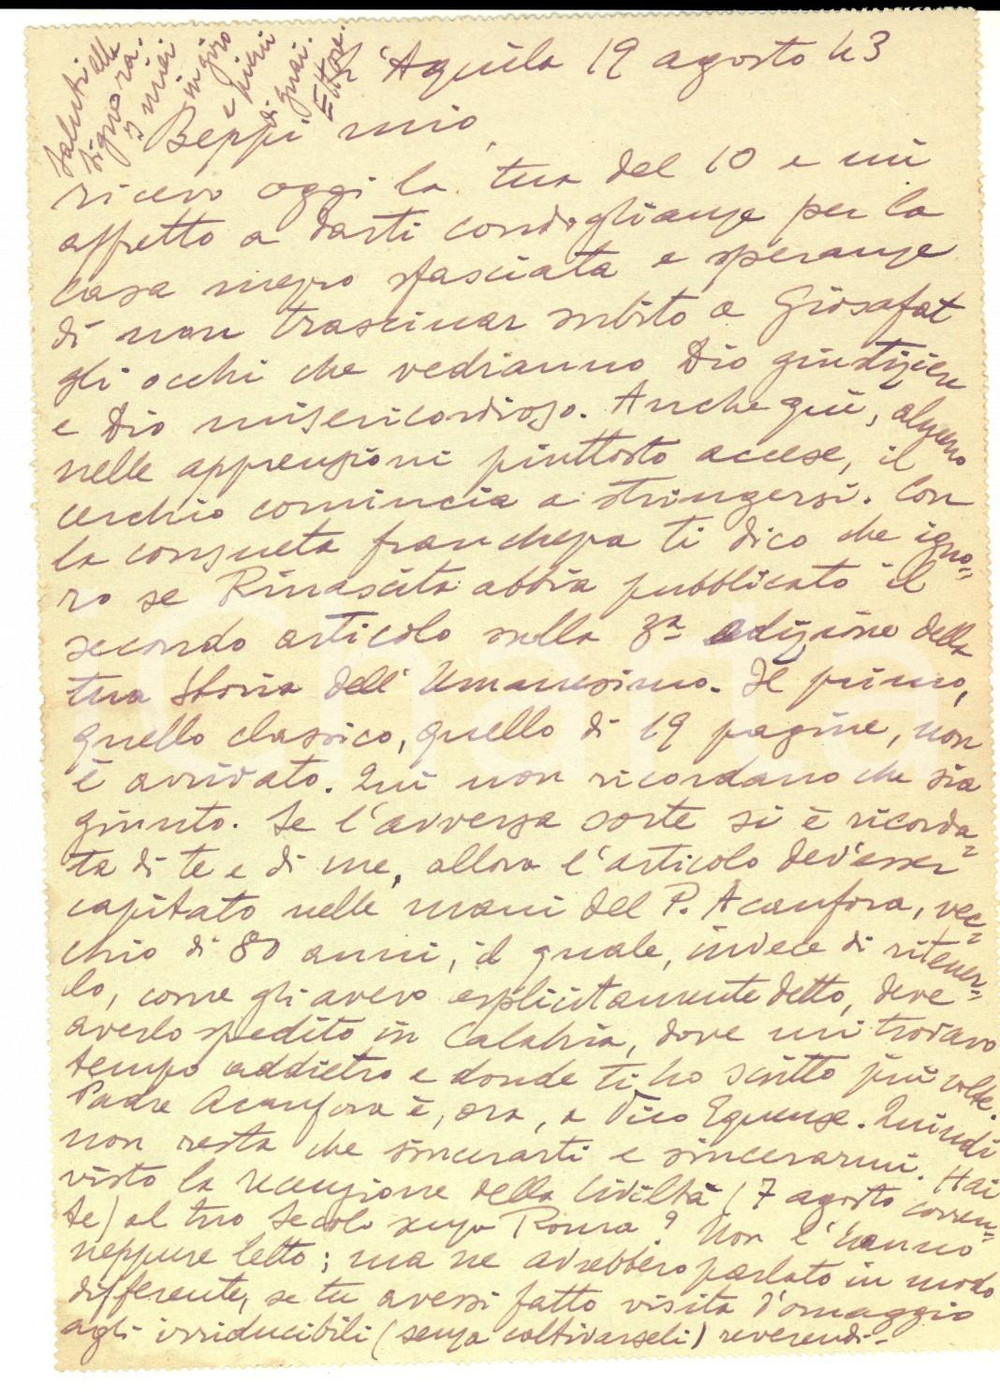 L'Aquila 19 agosto 43
Beppi mio,
ricevo oggi la tua del 10 e mi
affretto a darti condoglianze per la
casa mezzo sfasciata e speranze
di non trascinar subito a Giosafat
gli occhi che vedranno Dio giustiziere
e Dio misericordioso. Anche qui, almeno
nelle apprensioni piuttosto accese, il
cerchio comincia a stringersi. Con
la consueta franchezza ti dico che igno=
ro se Rinascita abbia pubblicato il
secondo articolo sulla 3ª edizione della
tua Storia dell'Umanesimo. Il primo,
quello classico, quello di 19 pagine, non
è arrivato. Qui non ricordano che sia
giunto. Se l'avversa sorte si è ricorda=
ta di te e di me, allora l'articolo dev'esser
capitato nelle mani del P. Acanfora, vec=
chio di 80 anni, il quale, invece di ritener=
lo, come gli avevo esplicitamente detto, deve
averlo spedito in Calabria, dove mi trovavo
tempo addietro e donde ti ho scritto più volte.
Padre Acanfora è, ora, a Vico Equense. Quindi
non resta che sincerarti e sincerarmi. Hai
visto la recensione della Civiltà (7 agosto corren=
te) al tuo Secolo senza Roma? Non l'hanno
neppure letto; ma ne avrebbero parlato in modo
differente, se tu avessi fatto visita d'omaggio
agli irriducibili (senza coltivarseli) reverendi=
Saluti alla
Signora.
I miei
in giro
e pieni
di guai.
Ettore.